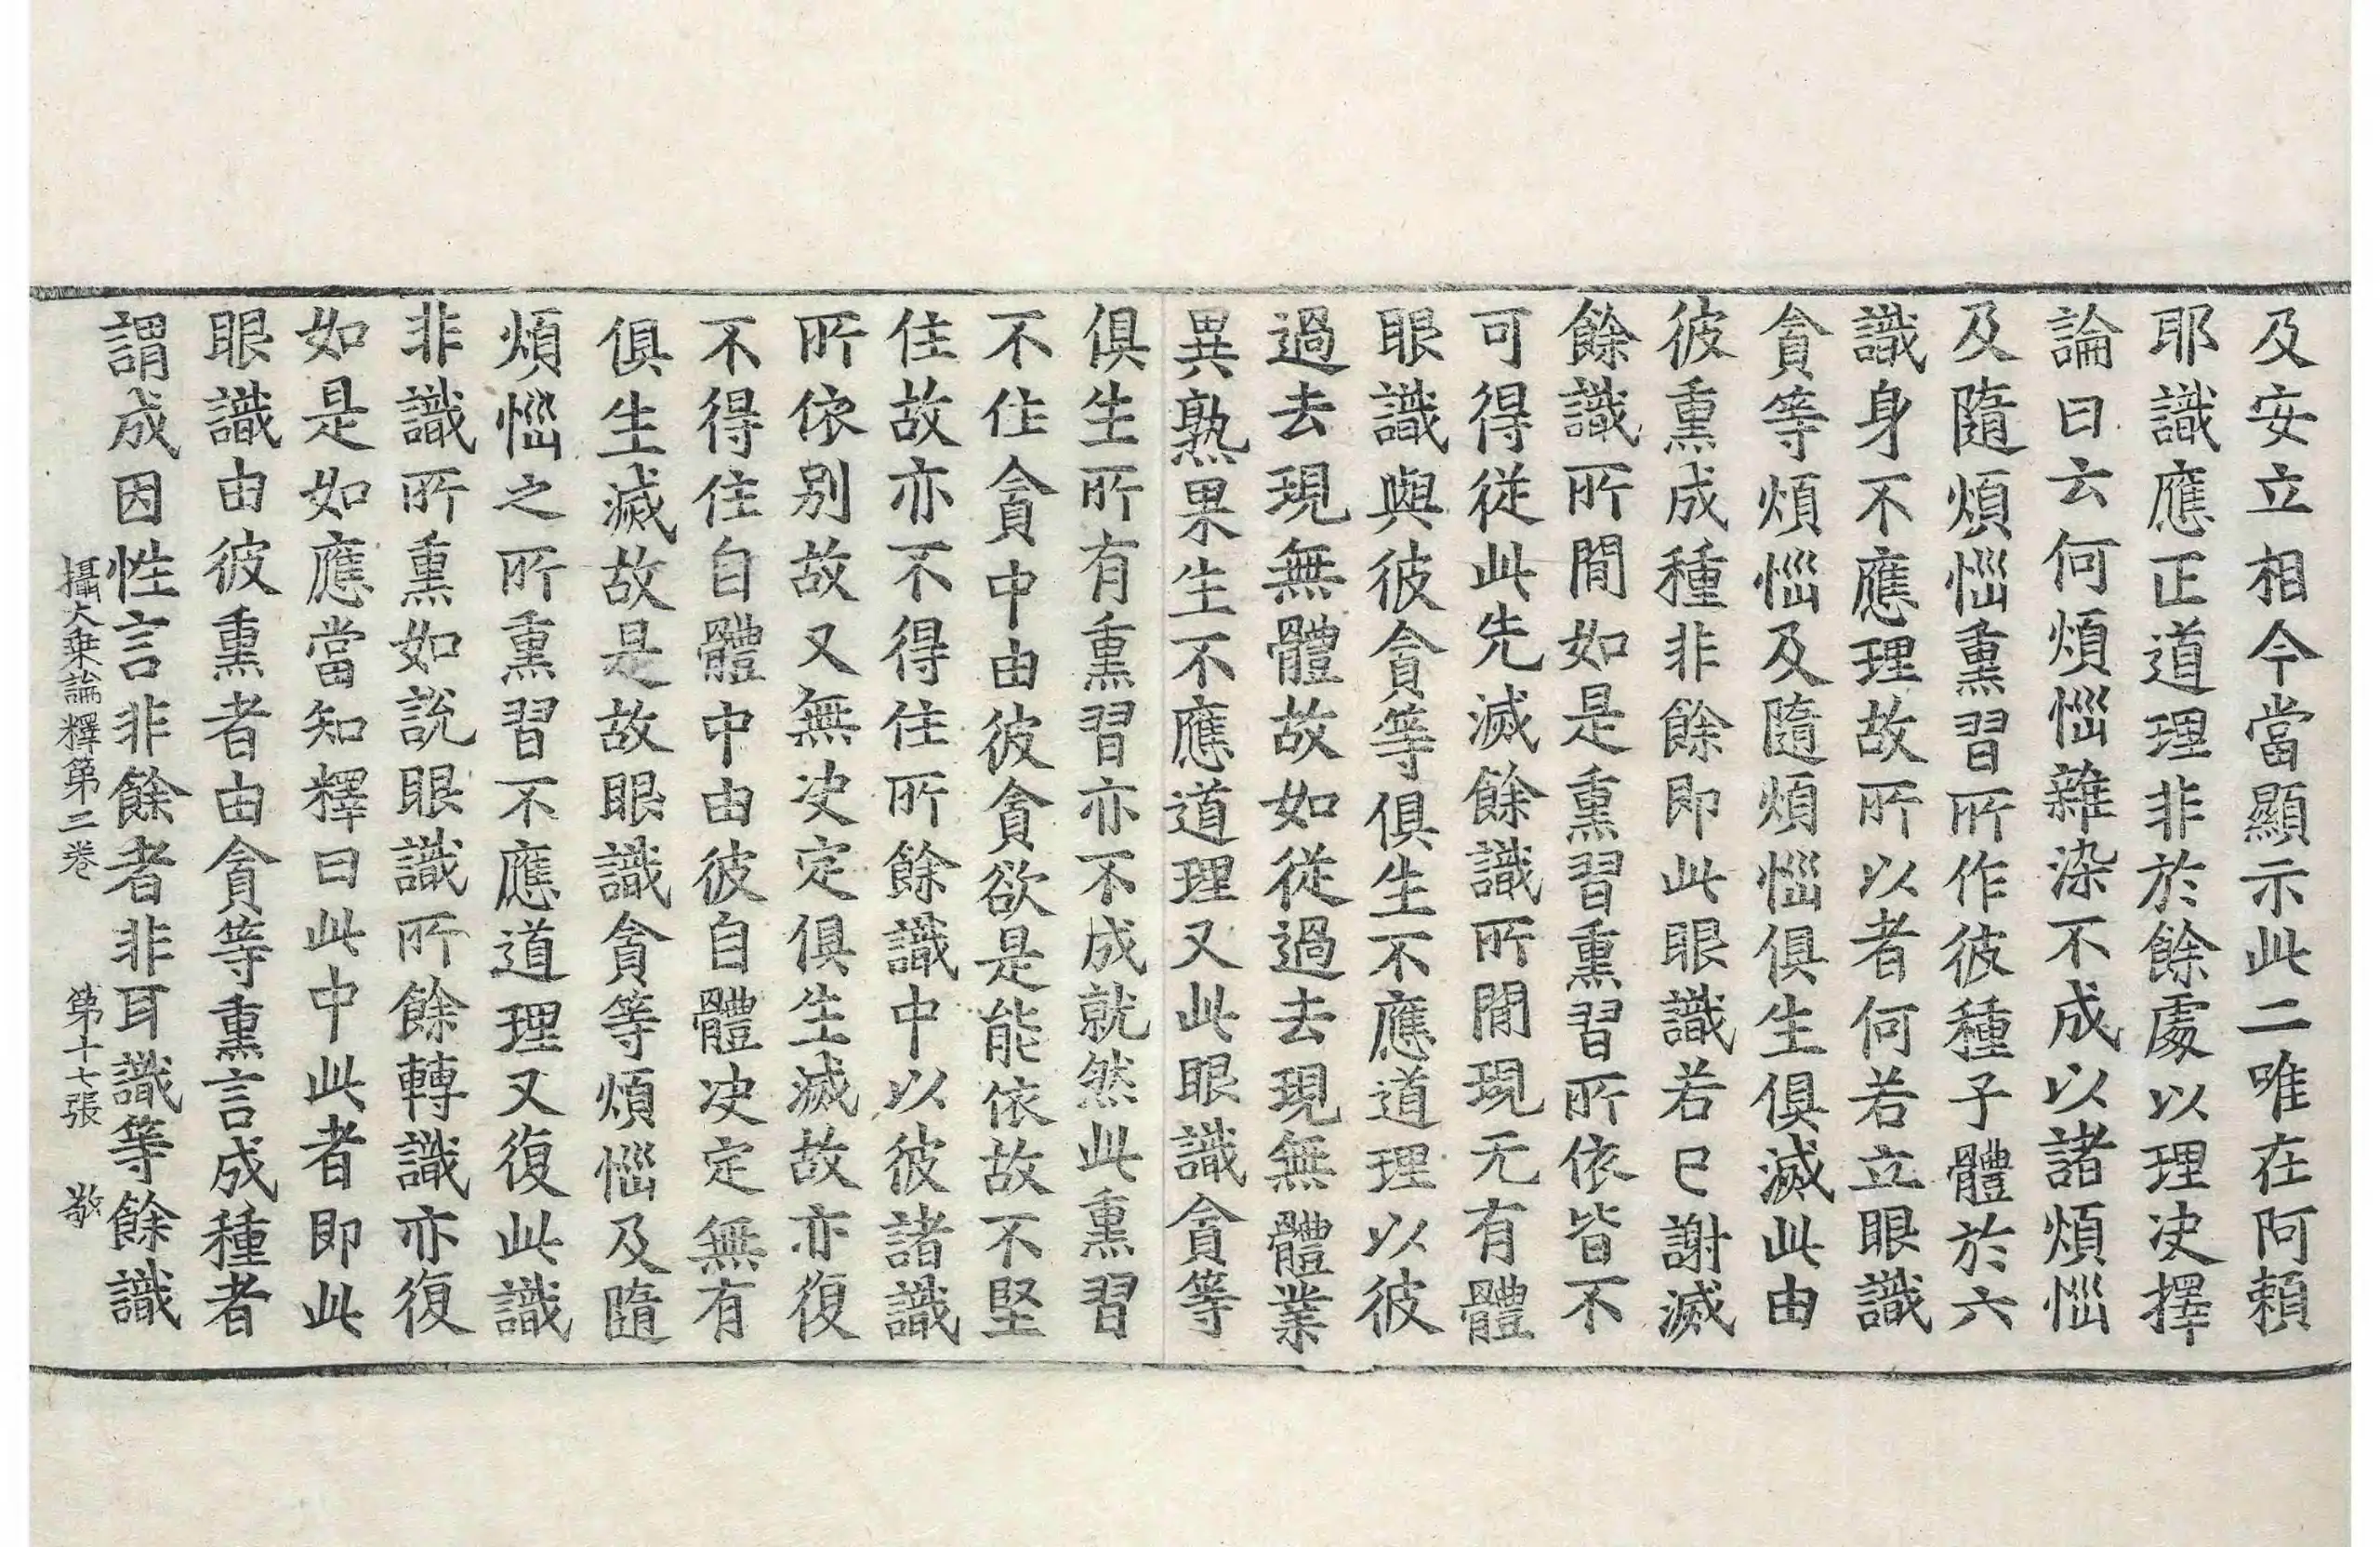 及安立相今當顯示此二唯在阿頼
耶識應正道理非於餘處以理决擇
論曰云何煩惱雜染不成以諸煩惱
及隨煩惱熏習所作彼種子體於六
識身不應理故所以者何若立眼識
貪等煩惱及隨煩惱俱生俱滅此由
彼熏成種非餘即此眼識若已謝滅
餘識所間如是熏習熏習所依皆不
可得從此先滅餘識所間現无有體
眼識與彼貪等俱生不應道理以彼
過去現無體故如從過去現無體業
異熟果生不應道理又此眼識貪等
俱生所有熏習亦不成就然此熏習
不住貪中由彼貪欲是能依故不堅
住故亦不得住所餘識中以彼諸識
所依別故又無决定俱生滅故亦復
不得住自體中由彼自體决定無有
俱生滅故是故眼識貪等煩惱及隨
煩惱之所熏習不應道理又復此識
非識所熏如說眼識所餘轉識亦復
如是如應當知釋曰此中此者即此
眼識由彼熏者由貪等熏言成種者
謂成因性言非餘者非耳識等餘識
攝大乘論釋第二卷　第十七張　敬